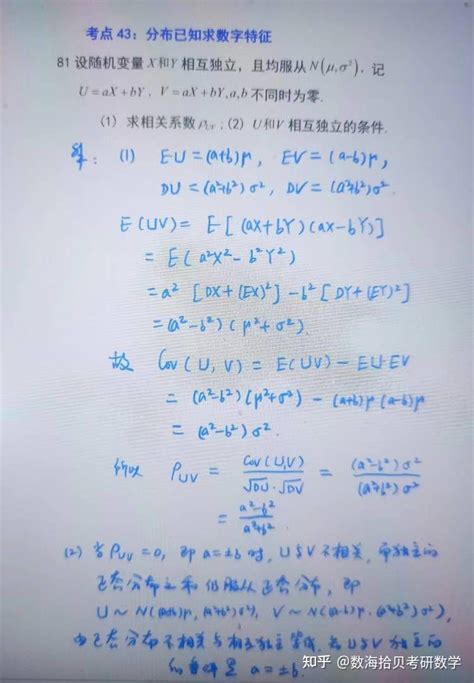 考点 43：分布已知求数字特征
81 设随机变量 X和Y 相互独立，且均服从 N(μ,σ²)，记
U = aX + bY，V = aX + bY,a,b 不同时为零.
(1) 求相关系数 ρUV；(2) U和V 相互独立的条件.
解：(1) EU = (a+b)μ, EV = (a-b)μ,
DU = (a²+b²)σ², DV = (a²+b²)σ².
E(UV) = E[(aX+bY)(aX-bY)]
= E(a²X² - b²Y²)
= a²[DX+(EX)²] - b²[DY+(EY)²]
= (a²-b²)(μ²+σ²).
故 Cov(U,V) = E(UV) - EU·EV
= (a²-b²)(μ²+σ²) - (a+b)μ(a-b)μ
= (a²-b²)σ².
所以 ρUV = Cov(U,V)/√DU·√DV = (a²-b²)σ²/(a²+b²)σ²
= a²-b²/a²+b²
(2) 当 ρUV = 0, 即 a=±b 时, U与V 不相关, 而独立的
正态分布之和仍服从正态分布, 即
U ~ N((a+b)μ, (a²+b²)σ²), V ~ N((a-b)μ, (a²+b²)σ²),
由正态分布不相关与相互独立等价, 故 U与V 独立的
条件是 a=±b.
知乎 @数海拾贝考研数学